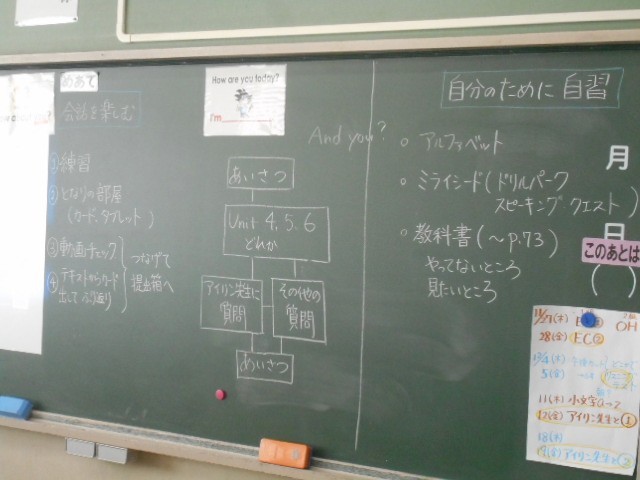 めあて
会話を楽しむ
①練習
②となりの部屋
(カード、タブレット)
③動画チェック
④テキストからカード
出して ふり返り
つなげて
提出箱へ
How are you today?
I'm
And you?
あいさつ
Unit 4, 5, 6
どれか
アイリン先生に
質問
その他の
質問
あいさつ
自分のために 自習
・アルファベット
・ミライシード(ドリルパーク
スピーキングクエスト)
・教科書(~p.73)
やってないところ
見たいところ
月
日
このあとは
( )
11/27(木)
OH
28(金) EC②
12/4(木)
5(金)
11(木) 小文字
12(金) アイリン先生と①
18(木)
19(金) アイリン先生と②